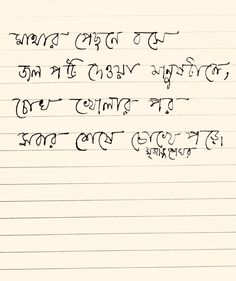 মাথার পেছনে বসে
জল পটি দেওয়া মানুষটাকে,
চোখ খোলার পর
সবার শেষে চোখে পড়ে।